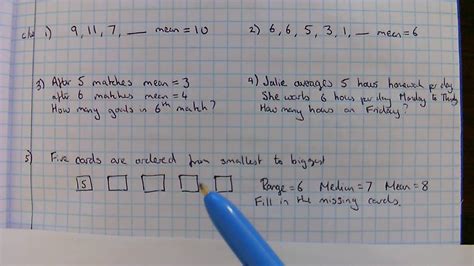 1) 9, 11, 7, __ mean = 10
2) 6, 6, 5, 3, 1, __ mean = 6
3) After 5 matches mean = 3
after 6 matches mean = 4
How many goals in 6th match?
4) Julie averages 5 hours homework per day.
She works 6 hours per day Monday to
How many hours on Friday?
5) Five cards are ordered from smallest to biggest
5
Range = 6 Median = 7 Mean = 8
Fill in the missing cards.